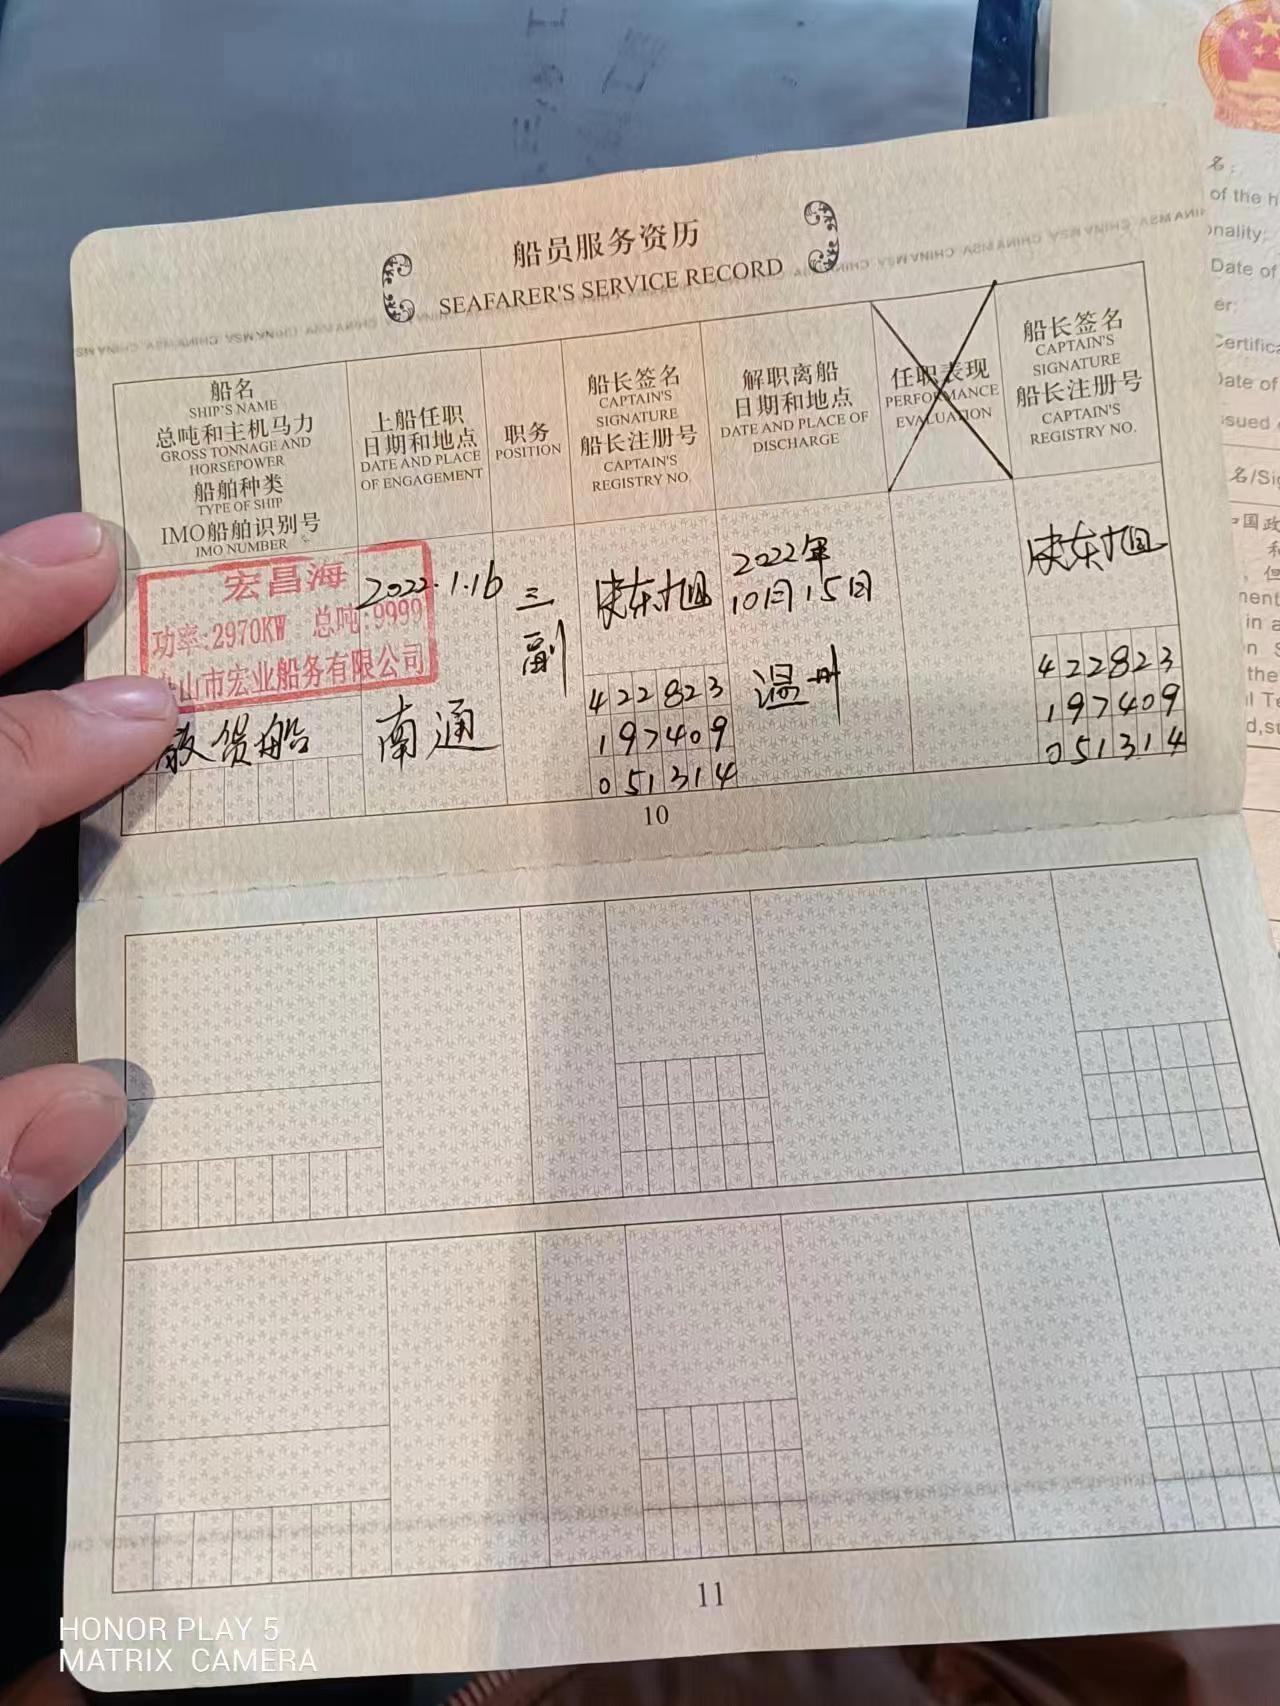 船员服务资历
SEAFARER'S SERVICE RECORD
船名
SHIP'S NAME
总吨和主机马力
GROSS TONNAGE AND
HORSEPOWER
船舶种类
TYPE OF SHIP
IMO船舶识别号
IMO NUMBER
上船任职
日期和地点
DATE AND PLACE
OF ENGAGEMENT
职务
POSITION
船长签名
CAPTAIN'S
SIGNATURE
船长注册号
CAPTAIN'S
REGISTRY NO.
解职离船
日期和地点
DATE AND PLACE OF
DISCHARGE
任职表现
PERFORMANCE
EVALUATION
船长签名
CAPTAIN'S
SIGNATURE
船长注册号
CAPTAIN'S
REGISTRY NO.
宏昌海
功率:2970KW 总吨:9999
山市宏业船务有限公司
散货船
2022.1.16
南通
三
副
东旭
422823
197409
051314
2022年
10月15日
温州
东旭
422823
197409
051314
10
11
名:
of the h
onality:
Date of
er:
Certific
Date of
ssued
名/Sig
国政
HONOR PLAY 5
MATRIX CAMERA